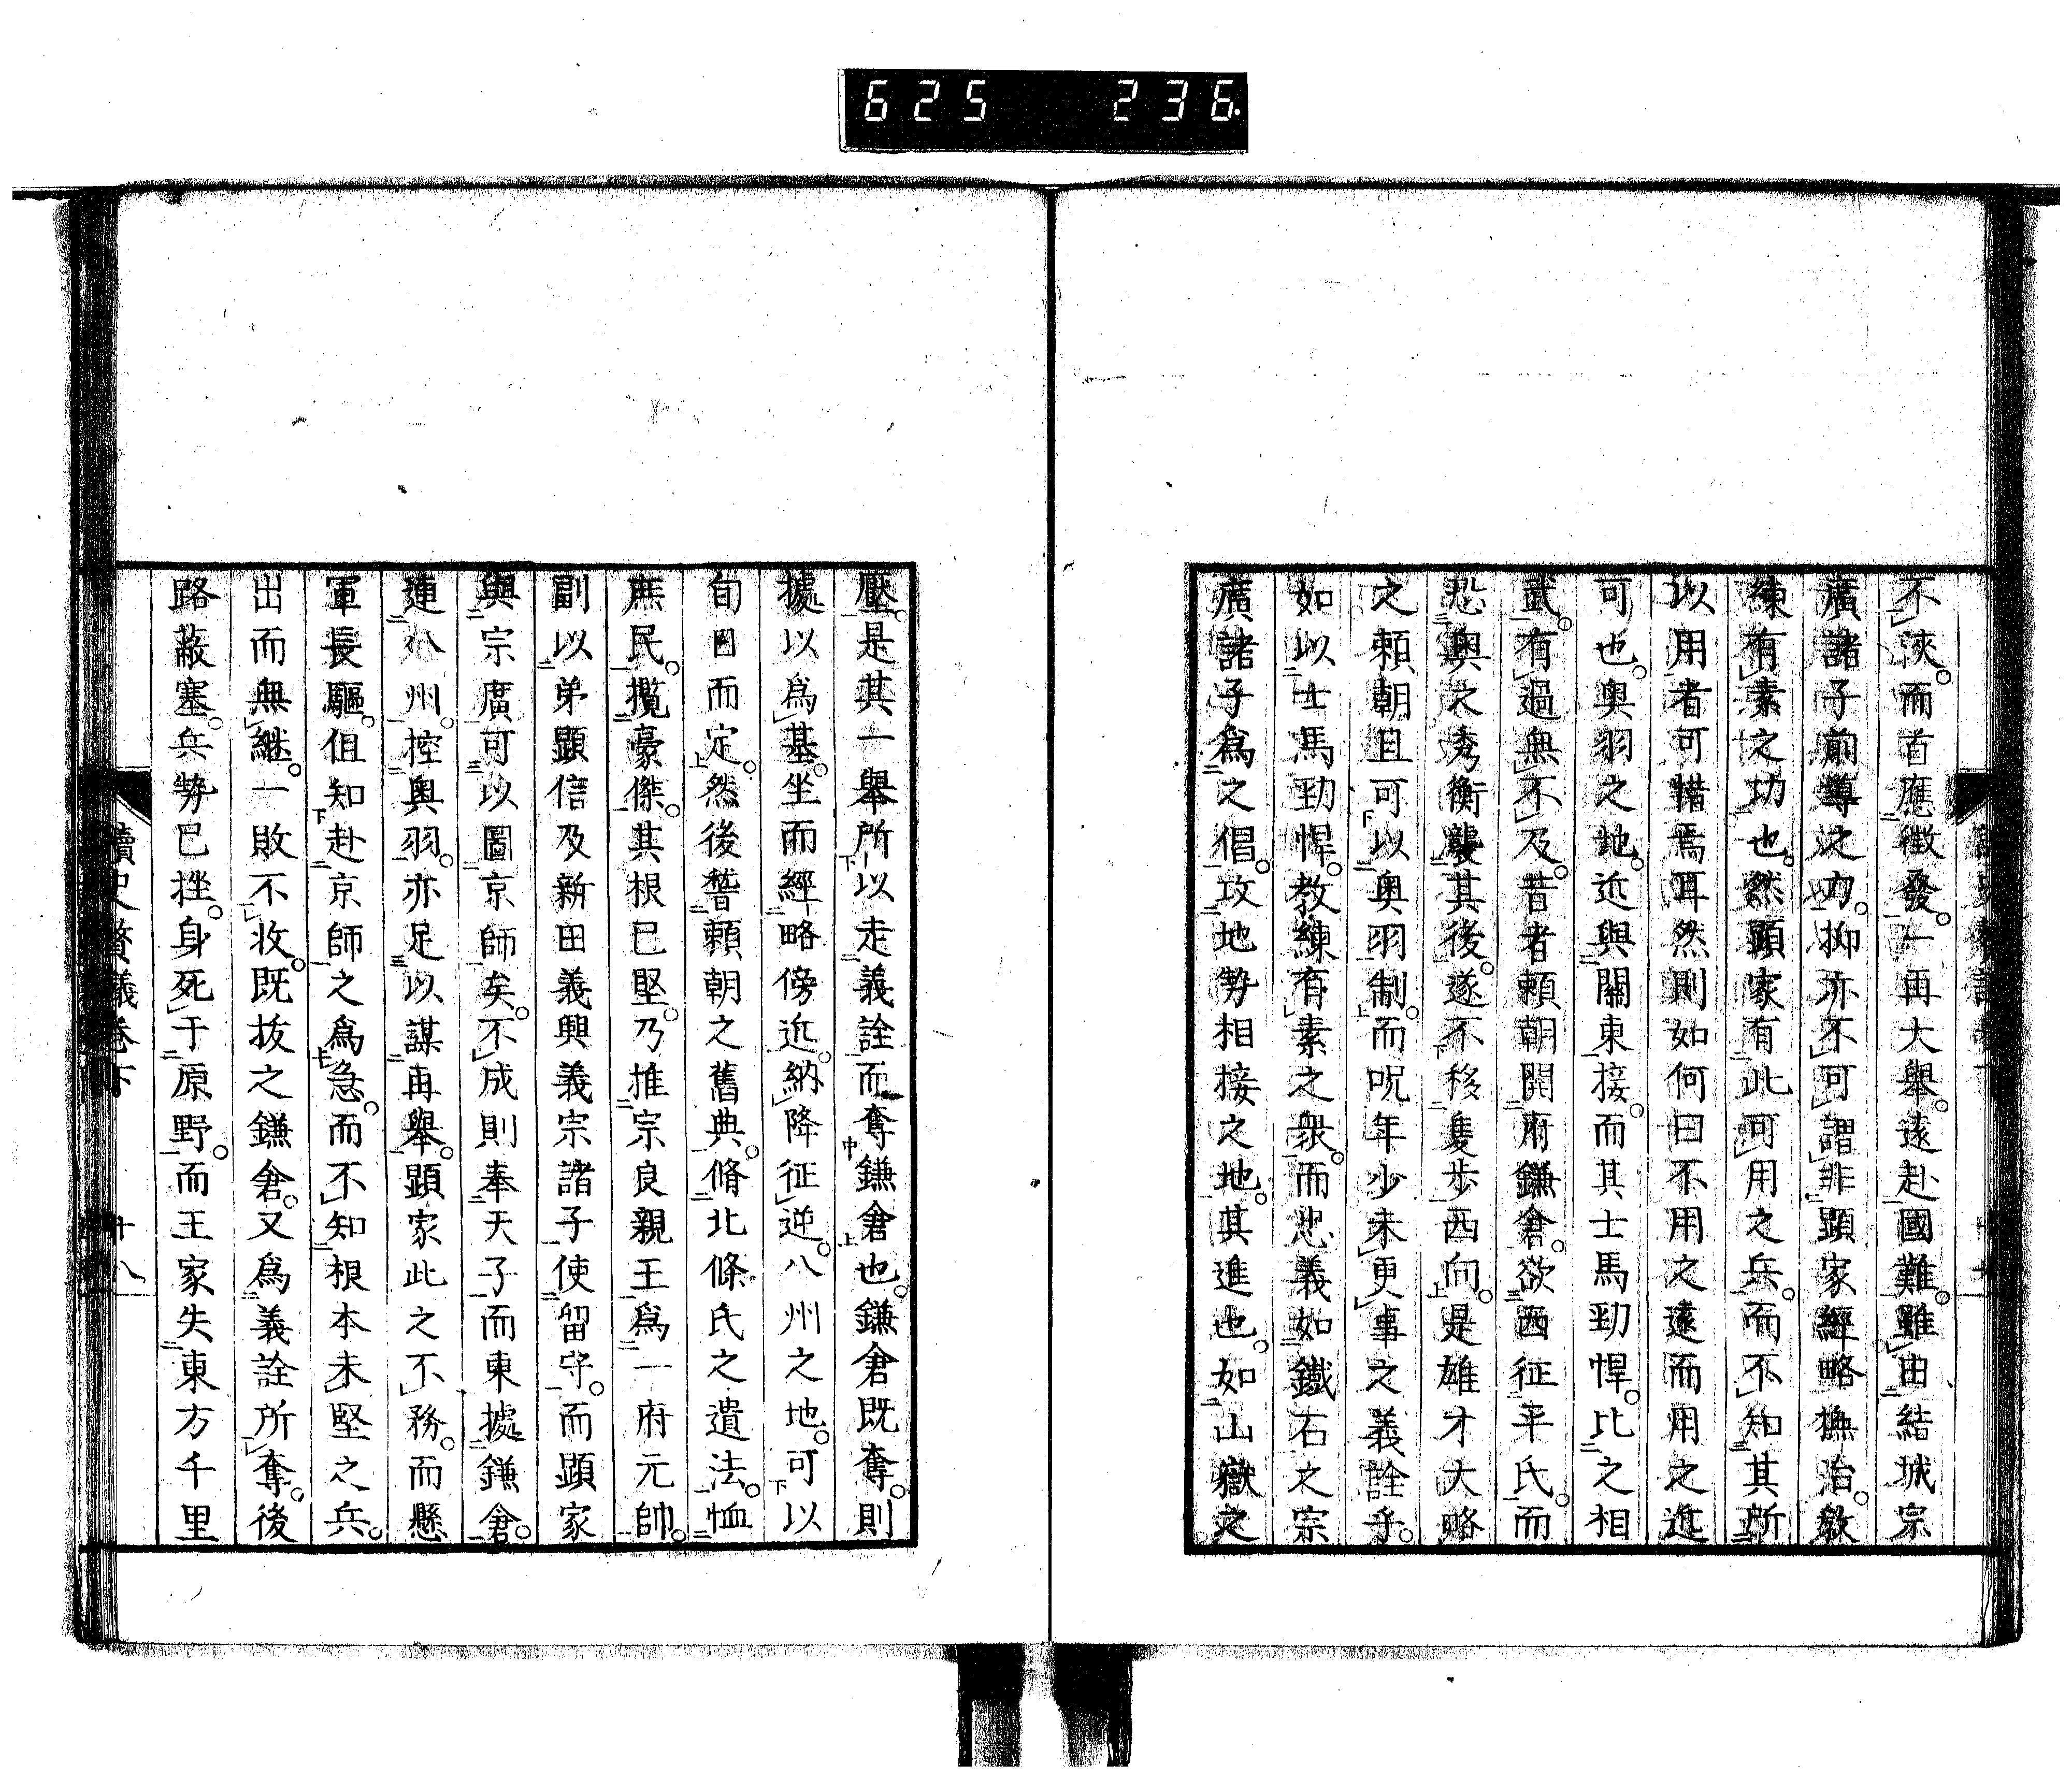 625 236.
不浹。而首應徴發。一再大舉。遠赴國難。雖由結城宗
廣諸子前導之力。抑亦不可謂非顯家經略撫治。敎
練有素之功也。然顯家有此可用之兵。而不知其所
以用者可惜焉耳然則如何曰不用之遠而用之近
可也。奥羽之地。近與關東接。而其士馬勁悍。比之相
武。有過無不及。昔者頼朝開府鎌倉。欲西征平氏。而
恐奥之秀衡襲其後。遂不移隻歩西向。是雄才大略
之頼朝且可以奥羽制。而呪年少未更事之義詮乎。
如以士馬勁悍。教練有素之衆。而忠義如鐵石之宗
廣諸子爲之倡。攻地勢相接之地。其進也。如山嶽之
壓。是其一舉所以走義詮而奪鎌倉也。鎌倉既奪。則
據以爲基。坐而經略傍近。納降征逆。八州之地。可以
旬日而定。然後督頼朝之舊典。脩北條氏之遺法。恤
庶民。攬豪傑。其根已堅。乃推宗良親王爲一府元帥。
副以弟顯信及新田義興義宗諸子使留守。而顯家
與宗廣可以圖京師矣。不成則奉天子而東據鎌倉。
連八州。控奥羽。亦足以謀再舉。顯家此之不務。而懸
軍長驅。但知赴京師之爲急。而不知根本未堅之兵。
出而無継。一敗不收。既抜之鎌倉。又爲義詮所奪。後
路蔽塞。兵勢已挫。身死于原野。而王家失東方千里
讀史贅議卷下 十八